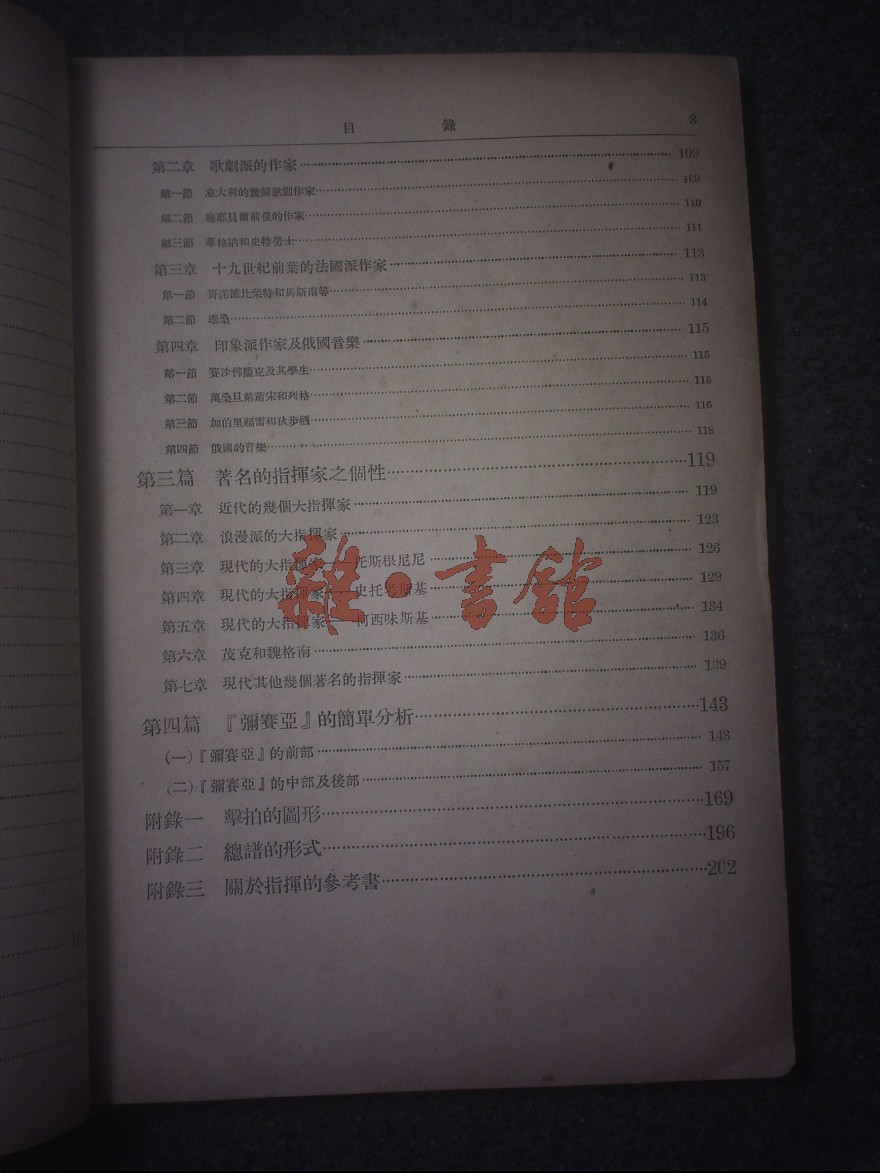 目 錄 3
第二章 歌劇派的作家 109
第一節 意大利的幾個歌劇作家 109
第二節 梅耶貝爾前後的作家 110
第三節 華格納和史特勞士 111
第三章 十九世紀前葉的法國派作家 113
第一節 哥諾德比柴特和馬斯南等 113
第二節 桑 114
第四章 印象派作家及俄國音樂 115
第一節 賽沙佛蘭克及其學生 115
第二節 萬桑旦第蕭宋和列格 115
第三節 加伯里福雷和狄步西 116
第四節 俄國的音樂 118
第三篇 著名的指揮家之個性 119
第一章 近代的幾個大指揮家 119
第二章 浪漫派的大指揮家 123
第三章 現代的大指揮家——托斯根尼尼 126
第四章 現代的大指揮家——史托考斯基 129
第五章 現代的大指揮家——柯西味斯基 134
第六章 茂克和魏格南 136
第七章 現代其他幾個著名的指揮家 139
第四篇 『彌賽亞』的簡單分析 143
(一)『彌賽亞』的前部 143
(二)『彌賽亞』的中部及後部 157
附錄一 擊拍的圖形 169
附錄二 總譜的形式 196
附錄三 關於指揮的參考書 202
雜·書館